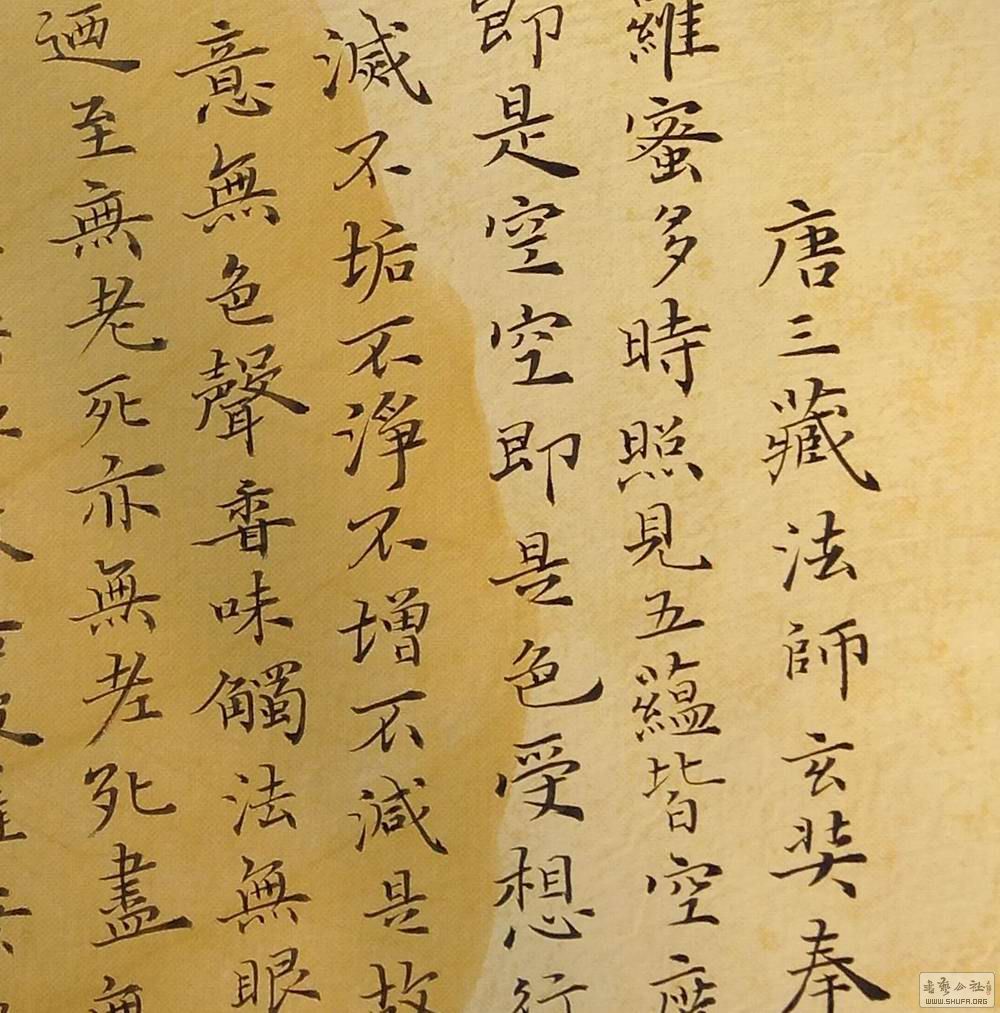 唐三藏法師玄奘奉
羅蜜多時照見五蘊皆空度
即是空空即是色受想行
滅不垢不淨不增不減是故
意無色聲香味觸法無眼
迺至無老死亦無老死盡無
書藝公社
WWW.SHUFA.ORG